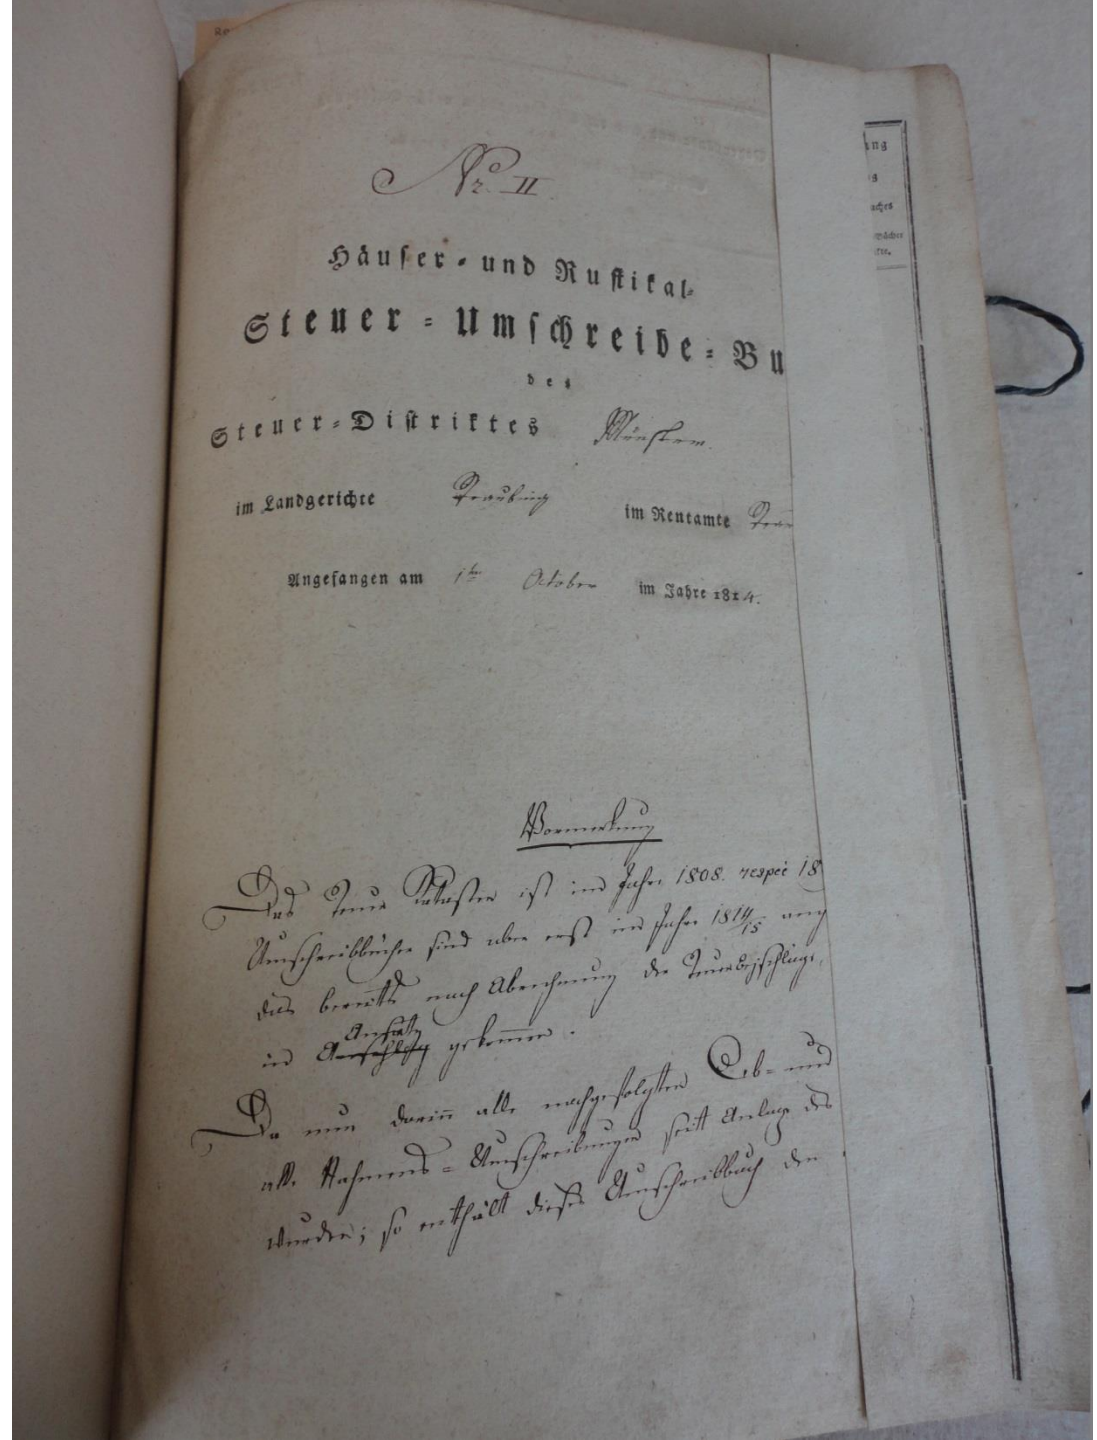 Nr. II
Häuser- und Rustikal-
Steuer-Umschreibe-Bu
des
Steuer-Distriktes Münster.
im Landgerichte Straubing im Rentamte Strau
Angefangen am 1ten October im Jahre 1814.
Vormerkung
Das Steuer Kataster ist im Jahre 1808. respec 18
Umschreibbücher sind aber erst im Jahre 1814/15 ang
das bereits nach Abrechnung der Steuerbeischläge,
Ansatz
in gekommen.
Da nun darin alle nachgefolgten Erb- und
alle Nahmens-Umschreibungen seit Anlage des
wurden; so enthält dieses Umschreibbuch den
ung
s
aches
Bücher
kte.